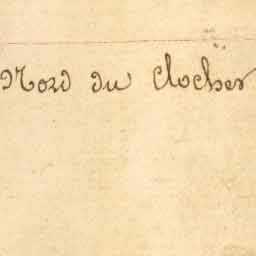 Nord du Clocher